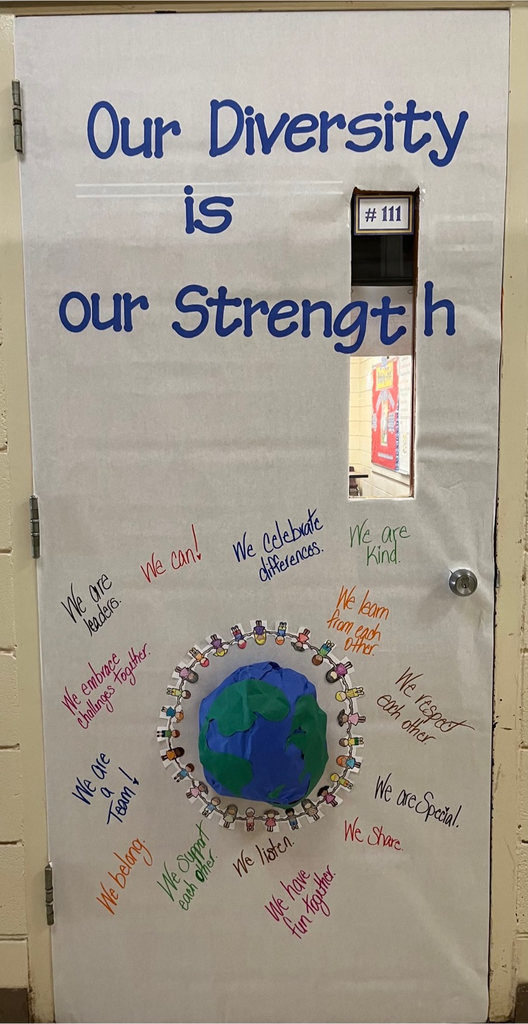 Our Diversity
is
# 111
our Strength
We can!
We celebrate
differences.
We are
Kind.
We are
leaders.
We learn
from each
other.
We embrace
challenges together.
We respect
each other.
We are
a
Team!
We are Special.
We share.
We belong.
We Support
each other.
We listen.
We have
fun together.